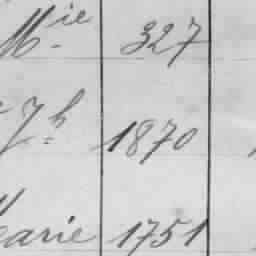 Mie 327
Jh 1870
arie 1751